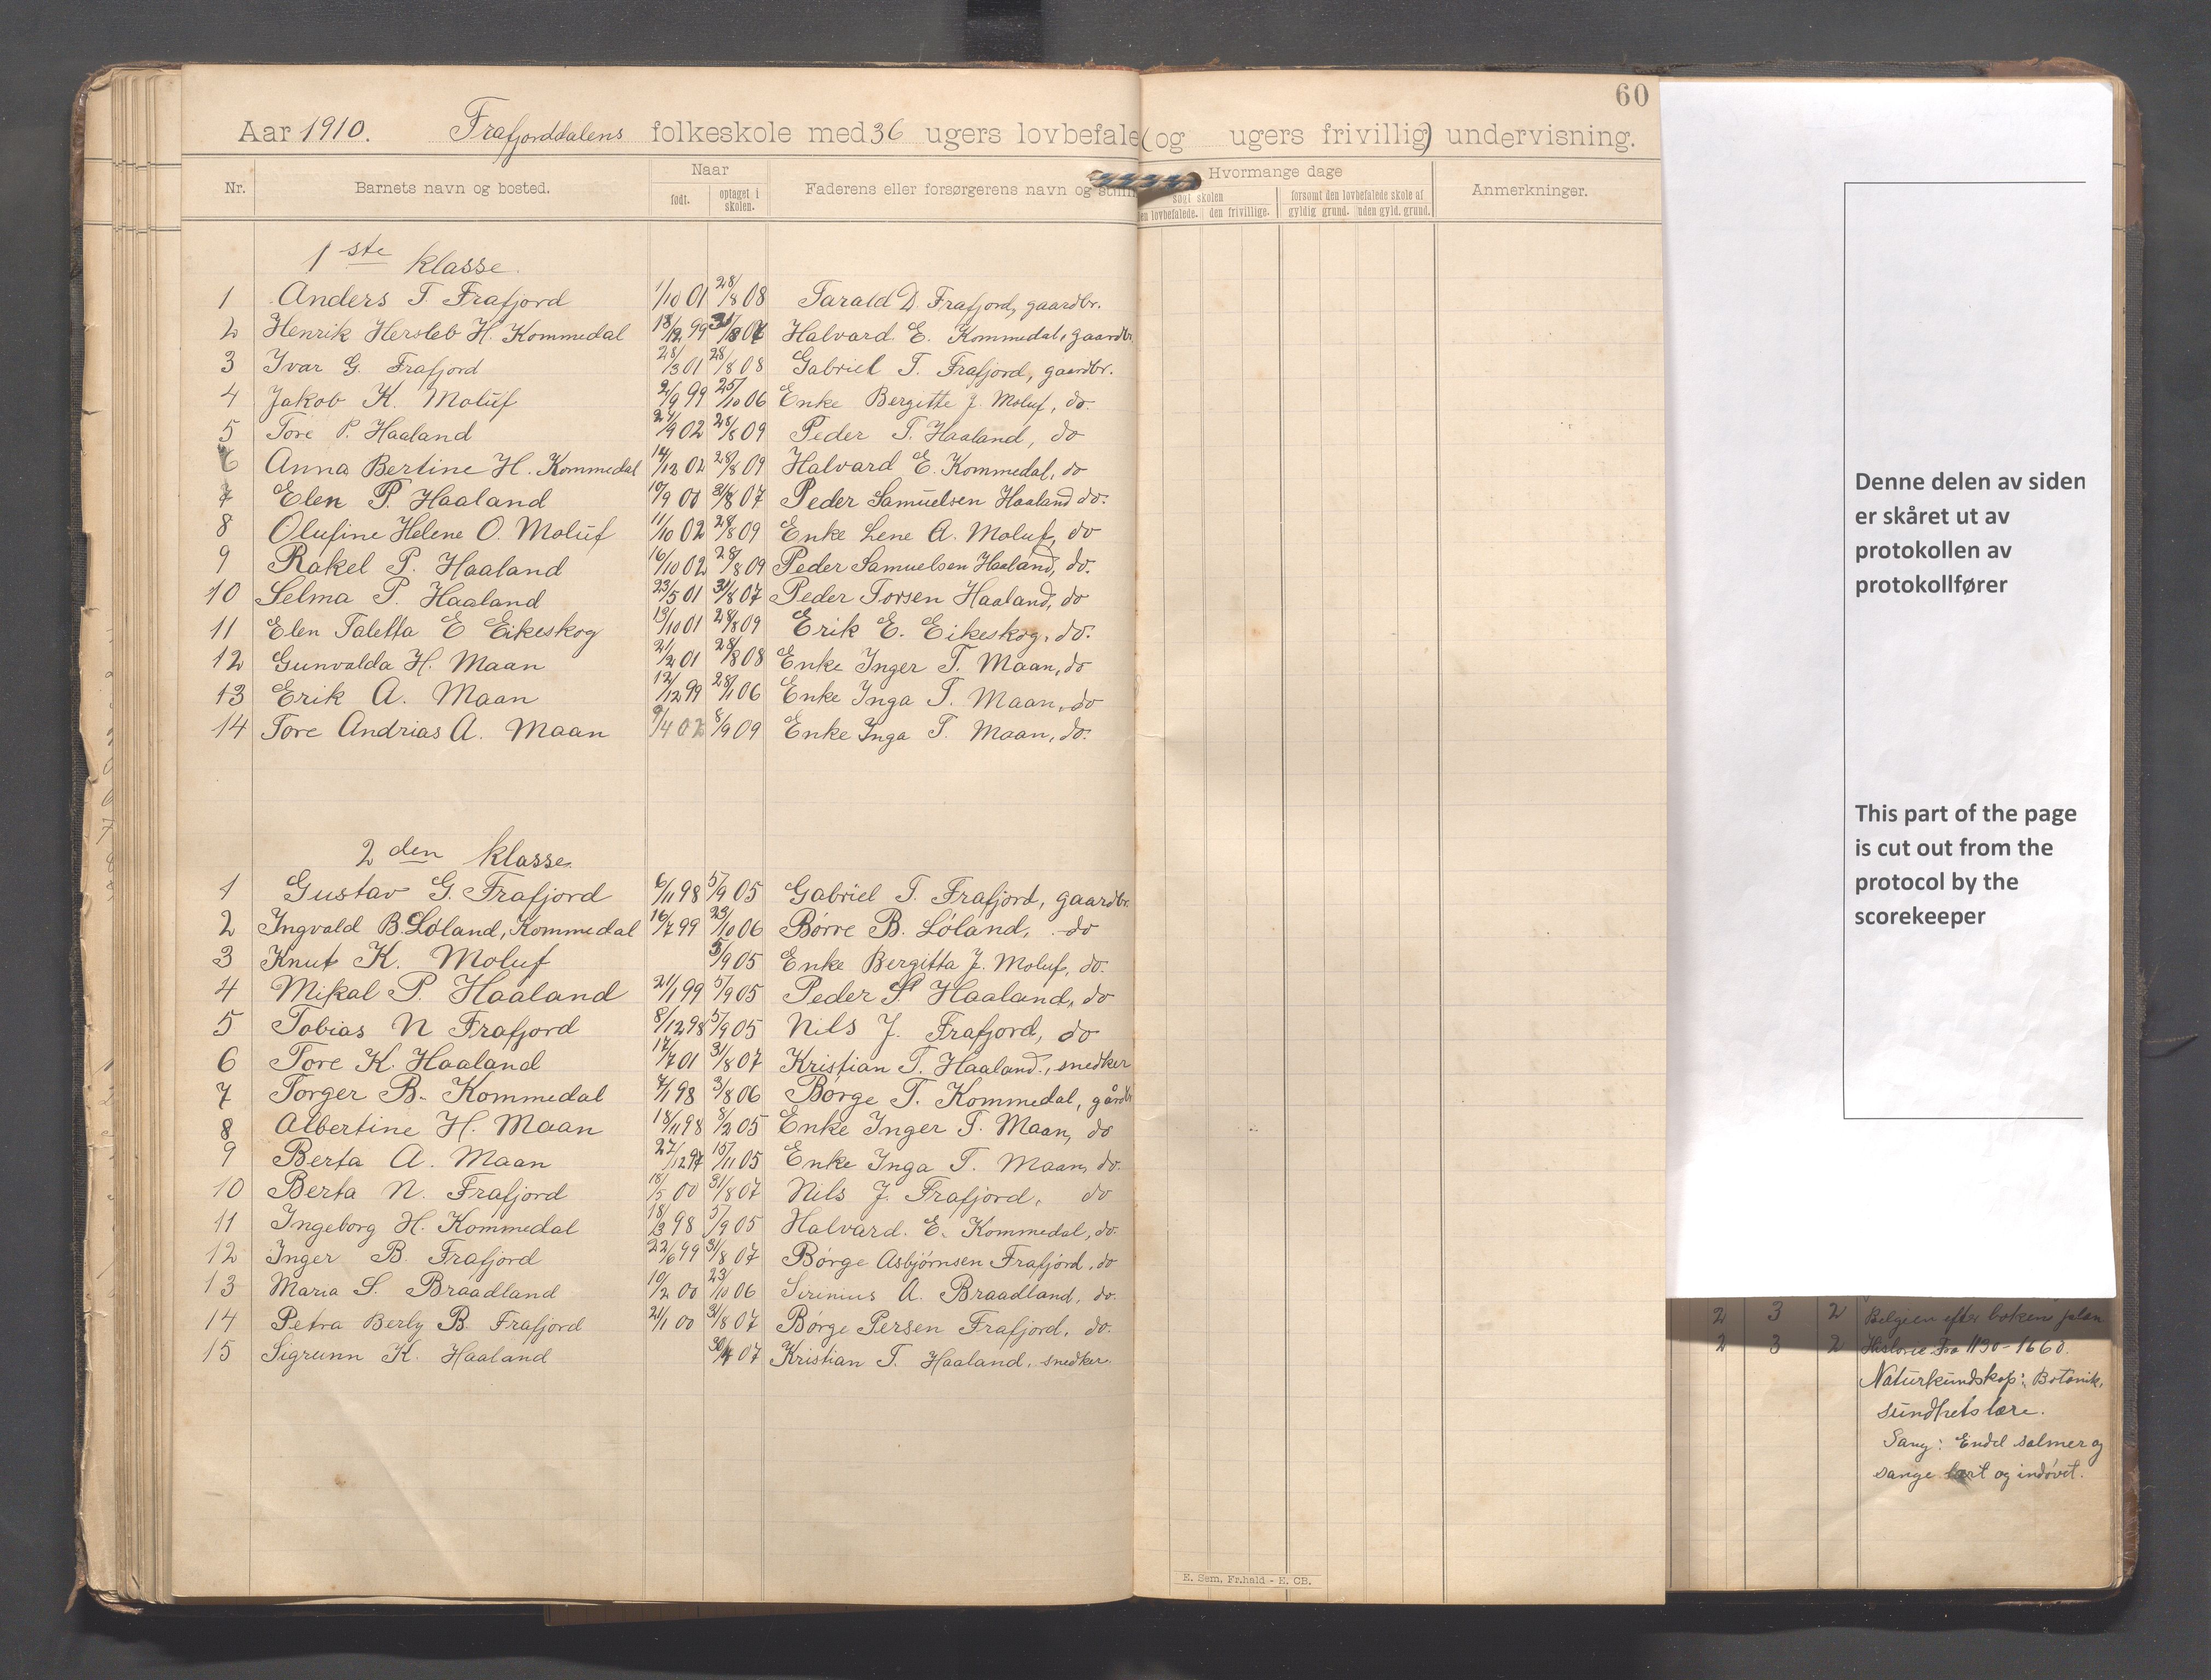 60
Aar 1910. Frafjorddalens folkeskole med 36 ugers lovbefale (og ugers frivillig) undervisning.
Nr. Barnets navn og bosted. Naar født. optaget i skolen. Faderens eller forsørgerens navn og Hvormange dage søgt skolen den frivillige. forsømt den lovbefalede skole af gyldig grund. uden gyld. grund. Anmerkninger.
1ste klasse.
1 Anders T. Frafjord 1/10 01 28/8 08 Tarald D. Frafjord, gaardbr.
2 Henrik Hersleb H. Kommedal 18/12 99 Halvard E. Kommedal, gaardbr
3 Ivar G. Frafjord 28/3 01 28/8 08 Gabriel T. Frafjord, gaardbr.
4 Jakob K. Moluf 2/9 99 25/10 06 Enke Bergitte J. Moluf, do.
5 Tore P. Haaland 27/9 02 28/8 09 Peder T. Haaland, do
6 Anna Bertine H. Kommedal 14/12 02 28/8 09 Halvard E. Kommedal, do
7 Elen P. Haaland 10/9 00 31/8 07 Peder Samuelsen Haaland do.
8 Olufine Helene O. Moluf 11/10 02 28/8 09 Enke Lene A. Moluf, do
9 Rakel P. Haaland 16/10 02 28/8 09 Peder Samuelsen Haaland, do.
10 Selma P. Haaland 23/5 01 31/8 07 Peder Torsen Haaland, do
11 Elen Taletta E Eikeskog 13/10 01 28/8 09 Erik E. Eikeskog, do.
12 Gunvalda H. Maan 21/2 01 28/8 08 Enke Inger T. Maan, do
13 Erik A. Maan 12/12 99 28/1 06 Enke Inga T. Maan, do
14 Tore Andrias A. Maan 9/4 02 8/9 09 Enke Inga T. Maan, do.
2den klasse.
1 Gustav G. Frafjord 6/11 98 5/9 05 Gabriel T. Frafjord, gaardbr.
2 Ingvald B. Løland, Kommedal 16/7 99 23/10 06 Børre B. Løland, do
3 Knut K. Moluf 5/9 05 Enke Bergitta J. Moluf, do.
4 Mikal P. Haaland 21/1 99 5/9 05 Peder S. Haaland, do
5 Tobias N Frafjord 8/12 98 5/9 05 Nils J. Frafjord, do
6 Tore K. Haaland 17/7 01 31/8 07 Kristian T. Haaland, snedker
7 Torger B. Kommedal 7/1 98 3/8 06 Børge T. Kommedal, gårdbr
8 Albertine H. Maan 18/11 98 8/2 05 Enke Inger T. Maan, do
9 Berta A. Maan 27/12 97 15/11 05 Enke Inga T. Maan, do.
10 Berta N. Frafjord 18/5 00 31/8 07 Nils J. Frafjord, do
11 Ingeborg H. Kommedal 18/3 98 5/9 05 Halvard. E. Kommedal, do.
12 Inger B. Frafjord 22/6 99 31/8 07 Børge Asbjørnsen Frafjord, do
13 Maria S. Braadland 10/2 00 23/10 06 Sirinius A. Braadland, do.
14 Petra Berly B. Frafjord 21/1 00 31/8 07 Børge Persen Frafjord, do.
15 Sigrunn K. Haaland 30/4 07 Kristian T. Haaland, snedker.
E. Sem, Fr.hald - E. CB.
Denne delen av siden
er skåret ut av
protokollen av
protokollfører
This part of the page
is cut out from the
protocol by the
scorekeeper
2 3 2 Belgien efter bokens plan
2 3 2 Historie Fra 1130-1660.
Naturkundskap: Botanik,
sundhetslære.
Sang: Endel salmer og
sange lært og indøvet.